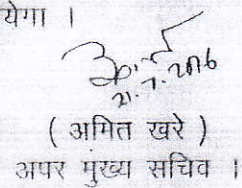 येगा ।
21.7.2016
( अमित खरे )
अपर मुख्य सचिव ।